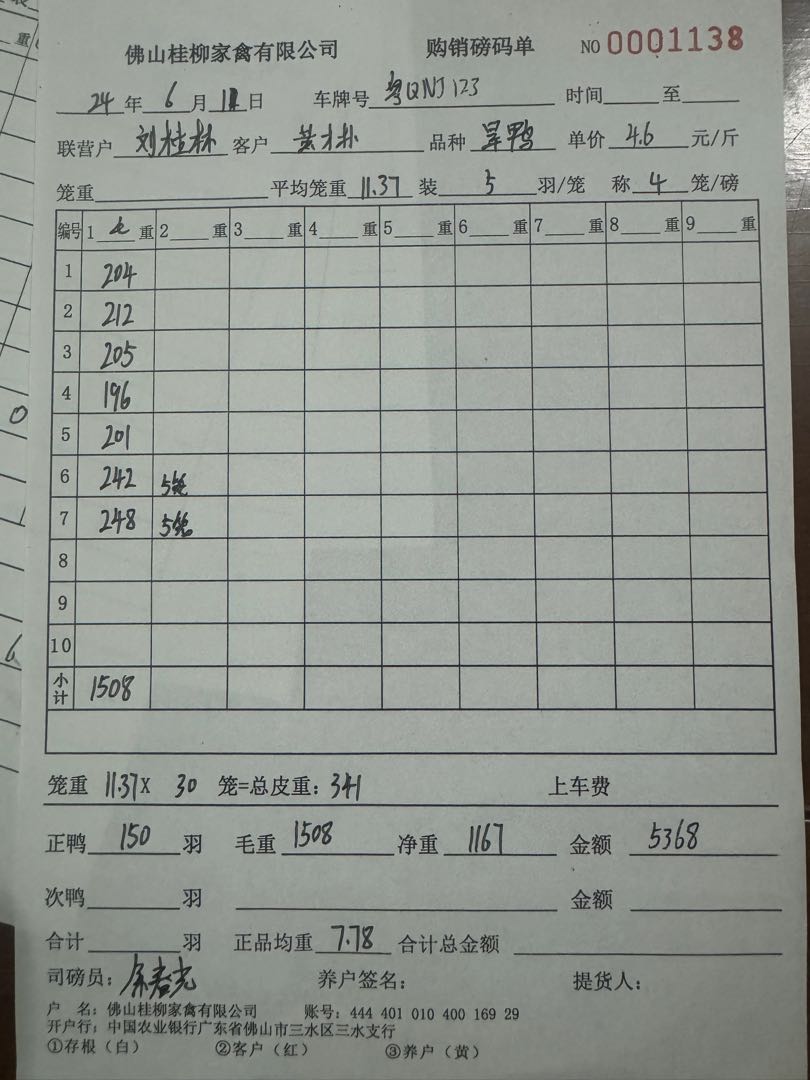 佛山桂柳家禽有限公司 购销磅码单 NO 0001138
24年6月11日 车牌号 粤QNJ123 时间 至
联营户 刘桂林 客户 黄才朴 品种 旱鸭 单价 4.6 元/斤
笼重 平均笼重 11.37 装 5 羽/笼 称 4 笼/磅
编号 1 重 2 重 3 重 4 重 5 重 6 重 7 重 8 重 9 重
1 204
2 212
3 205
4 196
5 201
6 242 5笼
7 248 5笼
8
9
10
小计 1508
笼重 11.37X 30 笼=总皮重: 341 上车费
正鸭 150 羽 毛重 1508 净重 1167 金额 5368
次鸭 羽 金额
合计 羽 正品均重 7.78 合计总金额
司磅员: 养户签名: 提货人:
户 名: 佛山桂柳家禽有限公司 账号: 444 401 010 400 169 29
开户行: 中国农业银行广东省佛山市三水区三水支行
①存根(白) ②客户(红) ③养户(黄)